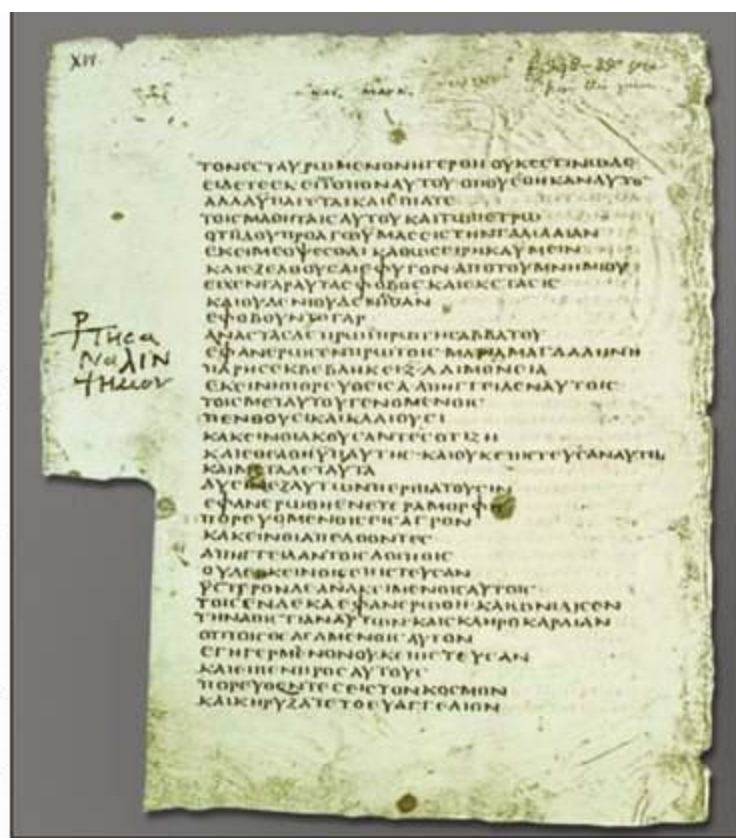 XIV
ΚΑΤ. ΜΑΡΚ.
ΤΟΝΕϹΤΑΥΡΩΜΕΝΟΝΗΓΕΡΘΗΟΥΚΕϹΤΙΝΩΔΕ
ΕΙΔΕΤΕΕΚΕΙΤΟΠΟΝΑΥΤΟΥ·ΟΠΟΥΕΘΗΚΑΝΑΥΤΟ
ΑΛΛΑΫΠΑΓΕΤΑΙΚΑΙΕΙΠΑΤΕ
ΤΟΙϹΜΑΘΗΤΑΙϹΑΥΤΟΥΚΑΙΤΩΠΕΤΡΩ
ΟΤΙΪΔΟΥΠΡΟΑΓΩΫΜΑϹΕΙϹΤΗΝΓΑΛΙΛΑΙΑΝ
ΕΚΕΙΜΕΟΨΕϹΘΑΙΚΑΘΩϹΕΙΡΗΚΑΥΜΕΙΝ
ΚΑΙΕΞΕΛΘΟΥϹΑΙΕΦΥΓΟΝΑΠΟΤΟΥΜΝΗΜΙΟΥ
ΕΙΧΕΝΓΑΡΑΥΤΑϹΦΟΒΟϹΚΑΙΕΚϹΤΑϹΙϹ
ΚΑΙΟΥΔΕΝΙΟΥΔΕΝΕΙΠΑΝ
ΕΦΟΒΟΥΝΤΟΓΑΡ
ΑΝΑϹΤΑϹΔΕΠΡΩΪΠΡΩΤΗϹΑΒΒΑΤΟΥ
ΕΦΑΝΕΡΩϹΕΝΠΡΩΤΟΙϹΜΑΡΙΑΜΑΓΔΑΛΗΝΗ
ΠΑΡΗϹΕΚΒΕΒΛΗΚΕΙΖ·ΔΑΙΜΟΝΕΙΑ
ΕΚΕΙΝΗΠΟΡΕΥΘΕΙϹΑΑΠΗΓΓΕΙΛΕΝΑΥΤΟΙϹ
ΤΟΙϹΜΕΤΑΥΤΟΥΓΕΝΟΜΕΝΟΙϹ
ΠΕΝΘΟΥϹΙΚΑΙΚΛΑΙΟΥϹΙ
ΚΑΚΕΙΝΟΙΑΚΟΥϹΑΝΤΕϹΟΤΙΖΗ
ΚΑΙΕΘΕΑΘΗΫΠΑΥΤΗϹ·ΚΑΙΟΥΚΕΠΙϹΤΕΥϹΑΝΑΥΤΗ
ΚΑΙΜΕΤΑΔΕΤΑΥΤΑ
ΔΥϹΙΝΕΞΑΥΤΩΝΠΕΡΙΠΑΤΟΥϹΙΝ
ΕΦΑΝΕΡΩΘΗΕΝΕΤΕΡΑΜΟΡΦΗ
ΠΟΡΕΥΟΜΕΝΟΙϹΕΙϹΑΓΡΟΝ
ΚΑΚΕΙΝΟΙΑΠΕΛΘΟΝΤΕϹ
ΑΠΗΓΓΕΙΛΑΝΤΟΙϹΛΟΙΠΟΙϹ
ΟΥΔΕΕΚΕΙΝΟΙϹΕΠΙϹΤΕΥϹΑΝ
ΫϹΤΕΡΟΝΔΕΑΝΑΚΕΙΜΕΝΟΙϹΑΥΤΟΙϹ
ΤΟΙϹΕΝΔΕΚΑΕΦΑΝΕΡΩΘΗ·ΚΑΙΩΝΙΔΙϹΕΝ
ΤΗΝΑΠΙϹΤΙΑΝΑΥΤΩΝ·ΚΑΙϹΚΛΗΡΟΚΑΡΔΙΑΝ
ΟΤΙΤΟΙϹΘΕΑϹΑΜΕΝΟΙϹΑΥΤΟΝ
ΕΓΗΓΕΡΜΕΝΟΝΟΥΚΕΠΙϹΤΕΥϹΑΝ
ΚΑΙΕΙΠΕΝΠΡΟϹΑΥΤΟΥϹ
ΠΟΡΕΥΘΕΝΤΕϹΕΙϹΤΟΝΚΟϹΜΟΝ
ΚΑΙΚΗΡΥΞΑΤΕΤΟΕΥΑΓΓΕΛΙΟΝ
ΤΗϹΑ
ΝΑΛΙΝ
ΨΗΜΟΥ